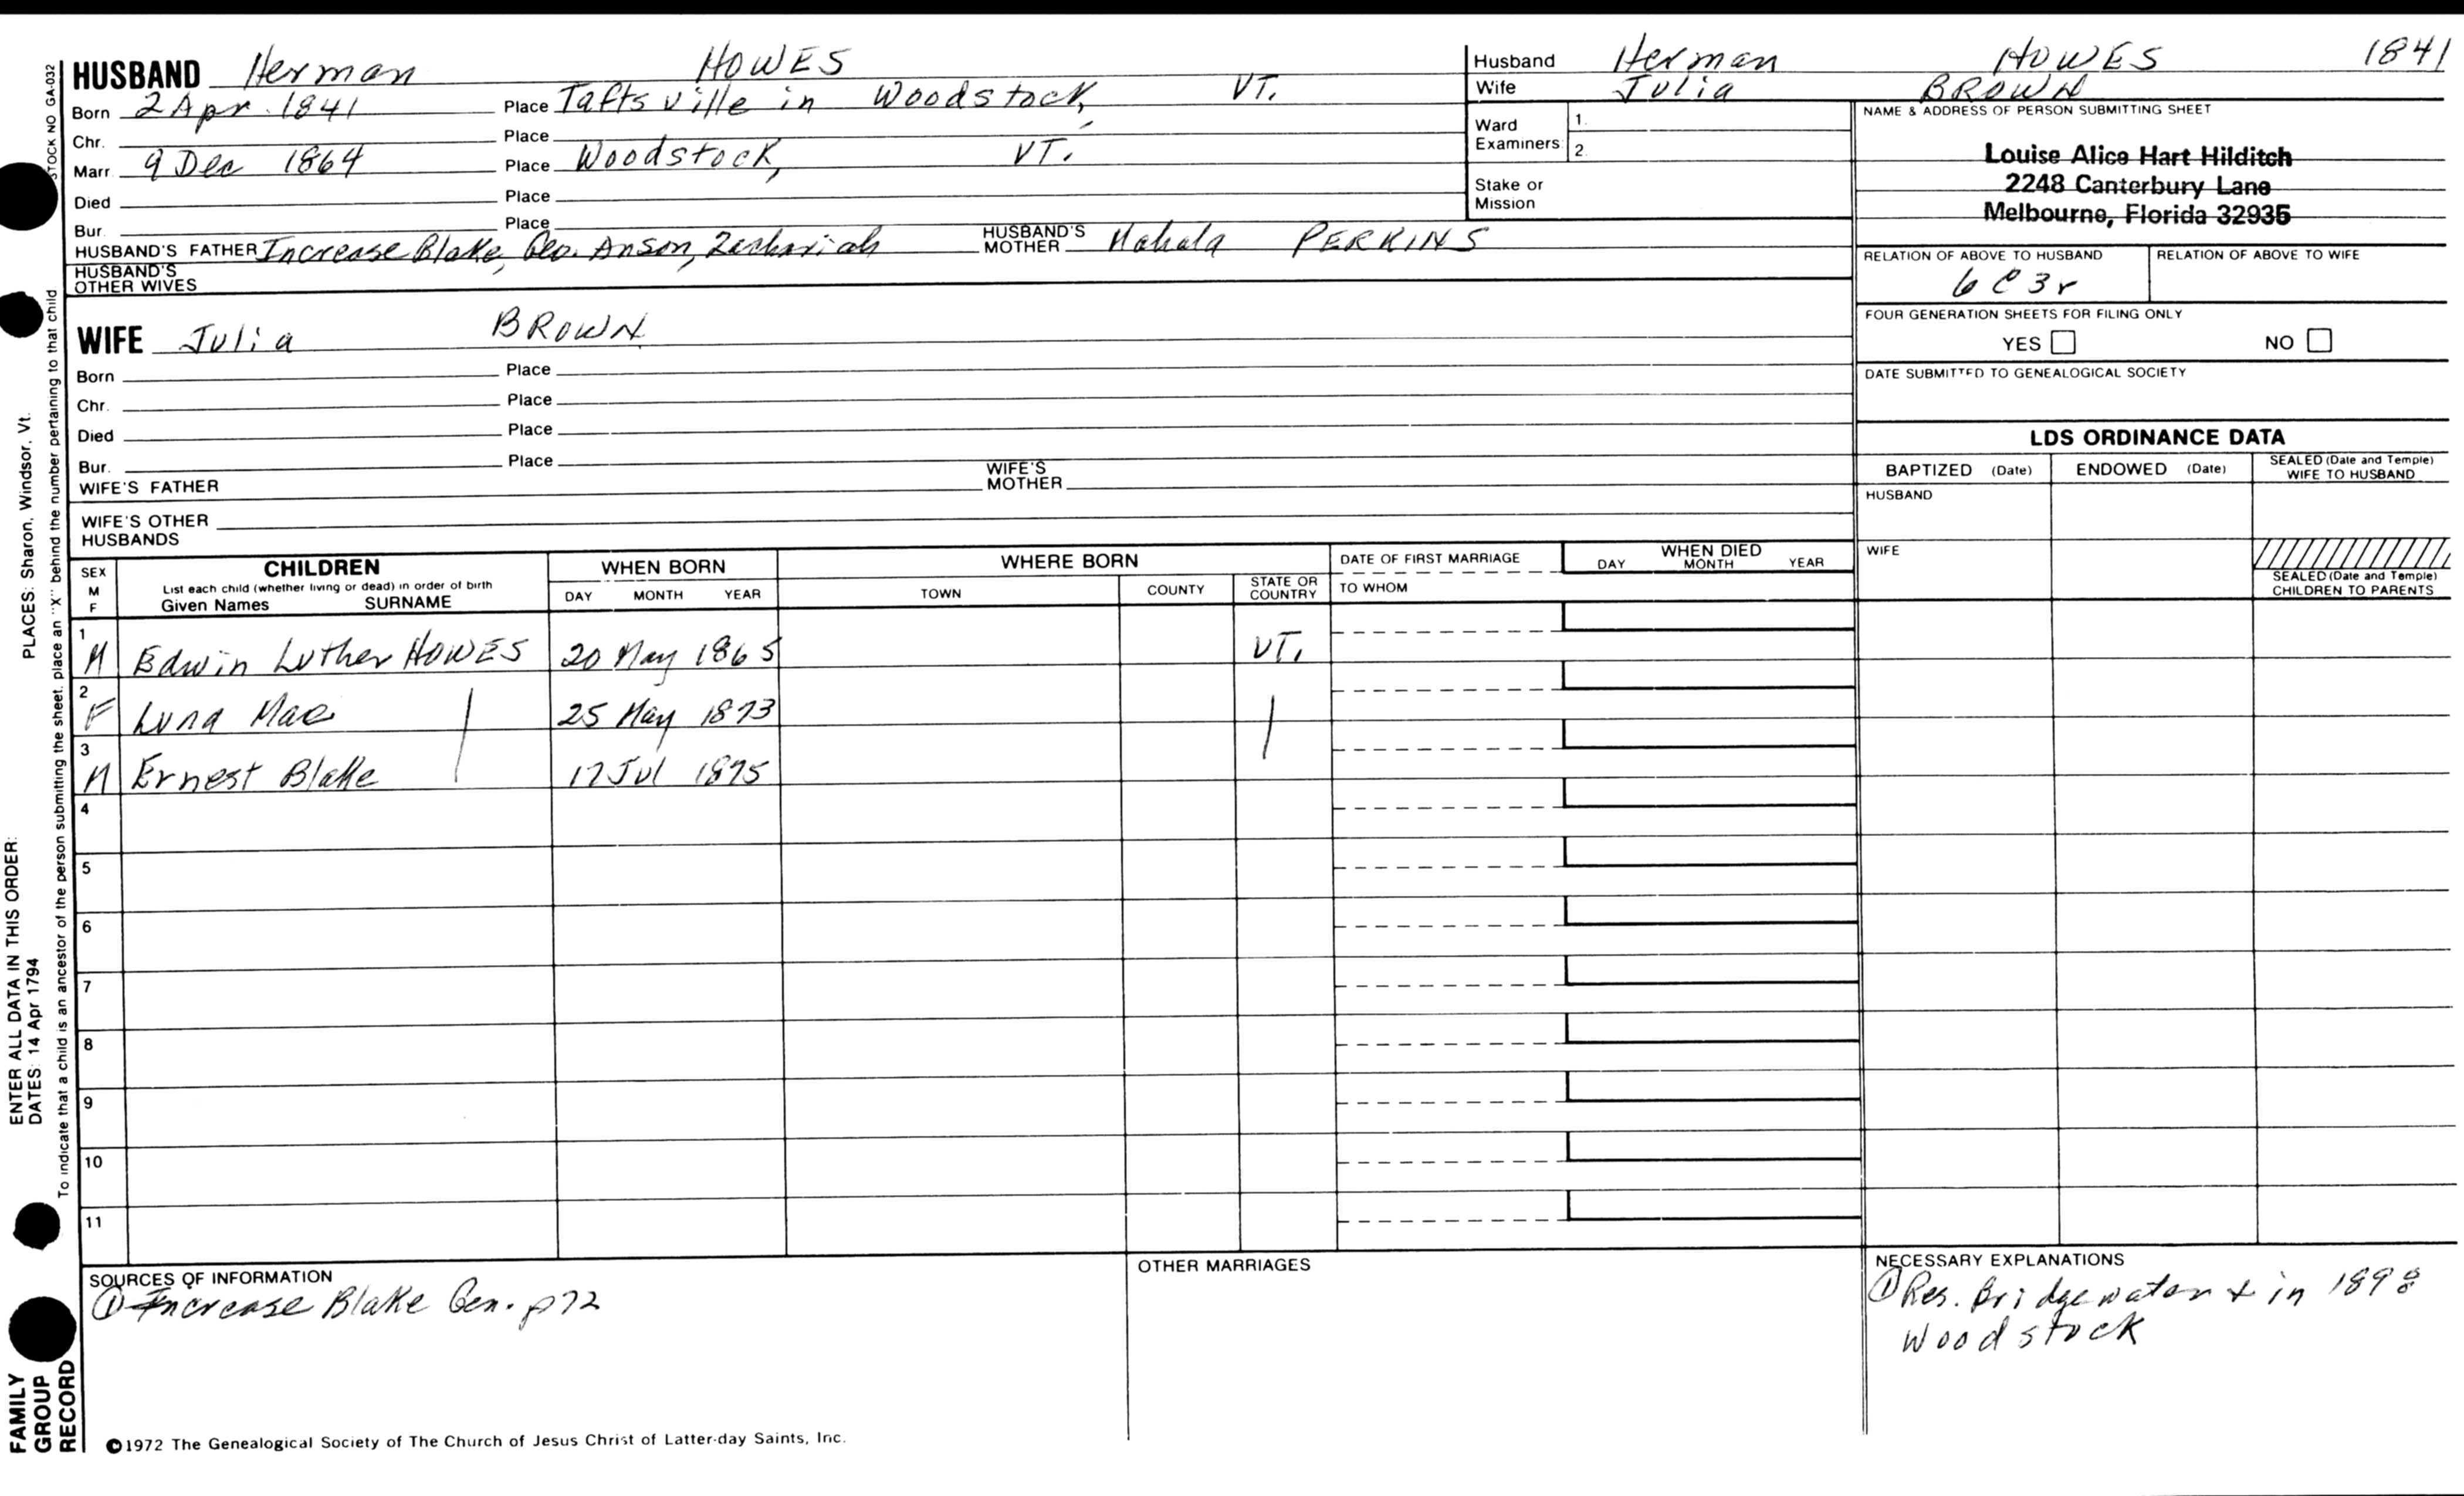 HUSBAND Herman HOWES
Born 2 Apr. 1841 Place Taftsville in Woodstock, VT.
Chr. Place
Marr. 9 Dec 1864 Place Woodstock, VT.
Died Place
Bur. Place
HUSBAND'S FATHER Increase Blake, Geo. Anson, Zachariah HUSBAND'S MOTHER Mahala PERKINS
HUSBAND'S OTHER WIVES
WIFE Julia BROWN
Born Place
Chr. Place
Died Place
Bur. Place
WIFE'S FATHER WIFE'S MOTHER
WIFE'S OTHER HUSBANDS
Husband Herman HOWES 1841
Wife Julia BROWN
Ward Examiners 1. 2.
Stake or Mission
NAME & ADDRESS OF PERSON SUBMITTING SHEET
Louise Alice Hart Hilditch
2248 Canterbury Lane
Melbourne, Florida 32935
RELATION OF ABOVE TO HUSBAND RELATION OF ABOVE TO WIFE
6C3r
FOUR GENERATION SHEETS FOR FILING ONLY
YES NO
DATE SUBMITTED TO GENEALOGICAL SOCIETY
LDS ORDINANCE DATA
BAPTIZED (Date) ENDOWED (Date) SEALED (Date and Temple) WIFE TO HUSBAND
HUSBAND
WIFE
SEALED (Date and Temple) CHILDREN TO PARENTS
SEX M F CHILDREN WHEN BORN WHERE BORN DATE OF FIRST MARRIAGE WHEN DIED
List each child (whether living or dead) in order of birth
Given Names SURNAME DAY MONTH YEAR TOWN COUNTY STATE OR COUNTRY TO WHOM DAY MONTH YEAR
1 M Edwin Luther HOWES 20 May 1865 VT.
2 F Luna Mae 25 May 1873
3 M Ernest Blake 17 Jul 1875
4
5
6
7
8
9
10
11
SOURCES OF INFORMATION
① Increase Blake Gen. p72
OTHER MARRIAGES
NECESSARY EXPLANATIONS
① Res. Bridgewater & in 1898
Woodstock
©1972 The Genealogical Society of The Church of Jesus Christ of Latter-day Saints, Inc.
FAMILY
GROUP
RECORD
ENTER ALL DATA IN THIS ORDER:
DATES: 14 Apr 1794
PLACES: Sharon, Windsor, Vt.
To indicate that a child is an ancestor of the person submitting the sheet, place an "X" behind the number pertaining to that child
STOCK NO GA-032